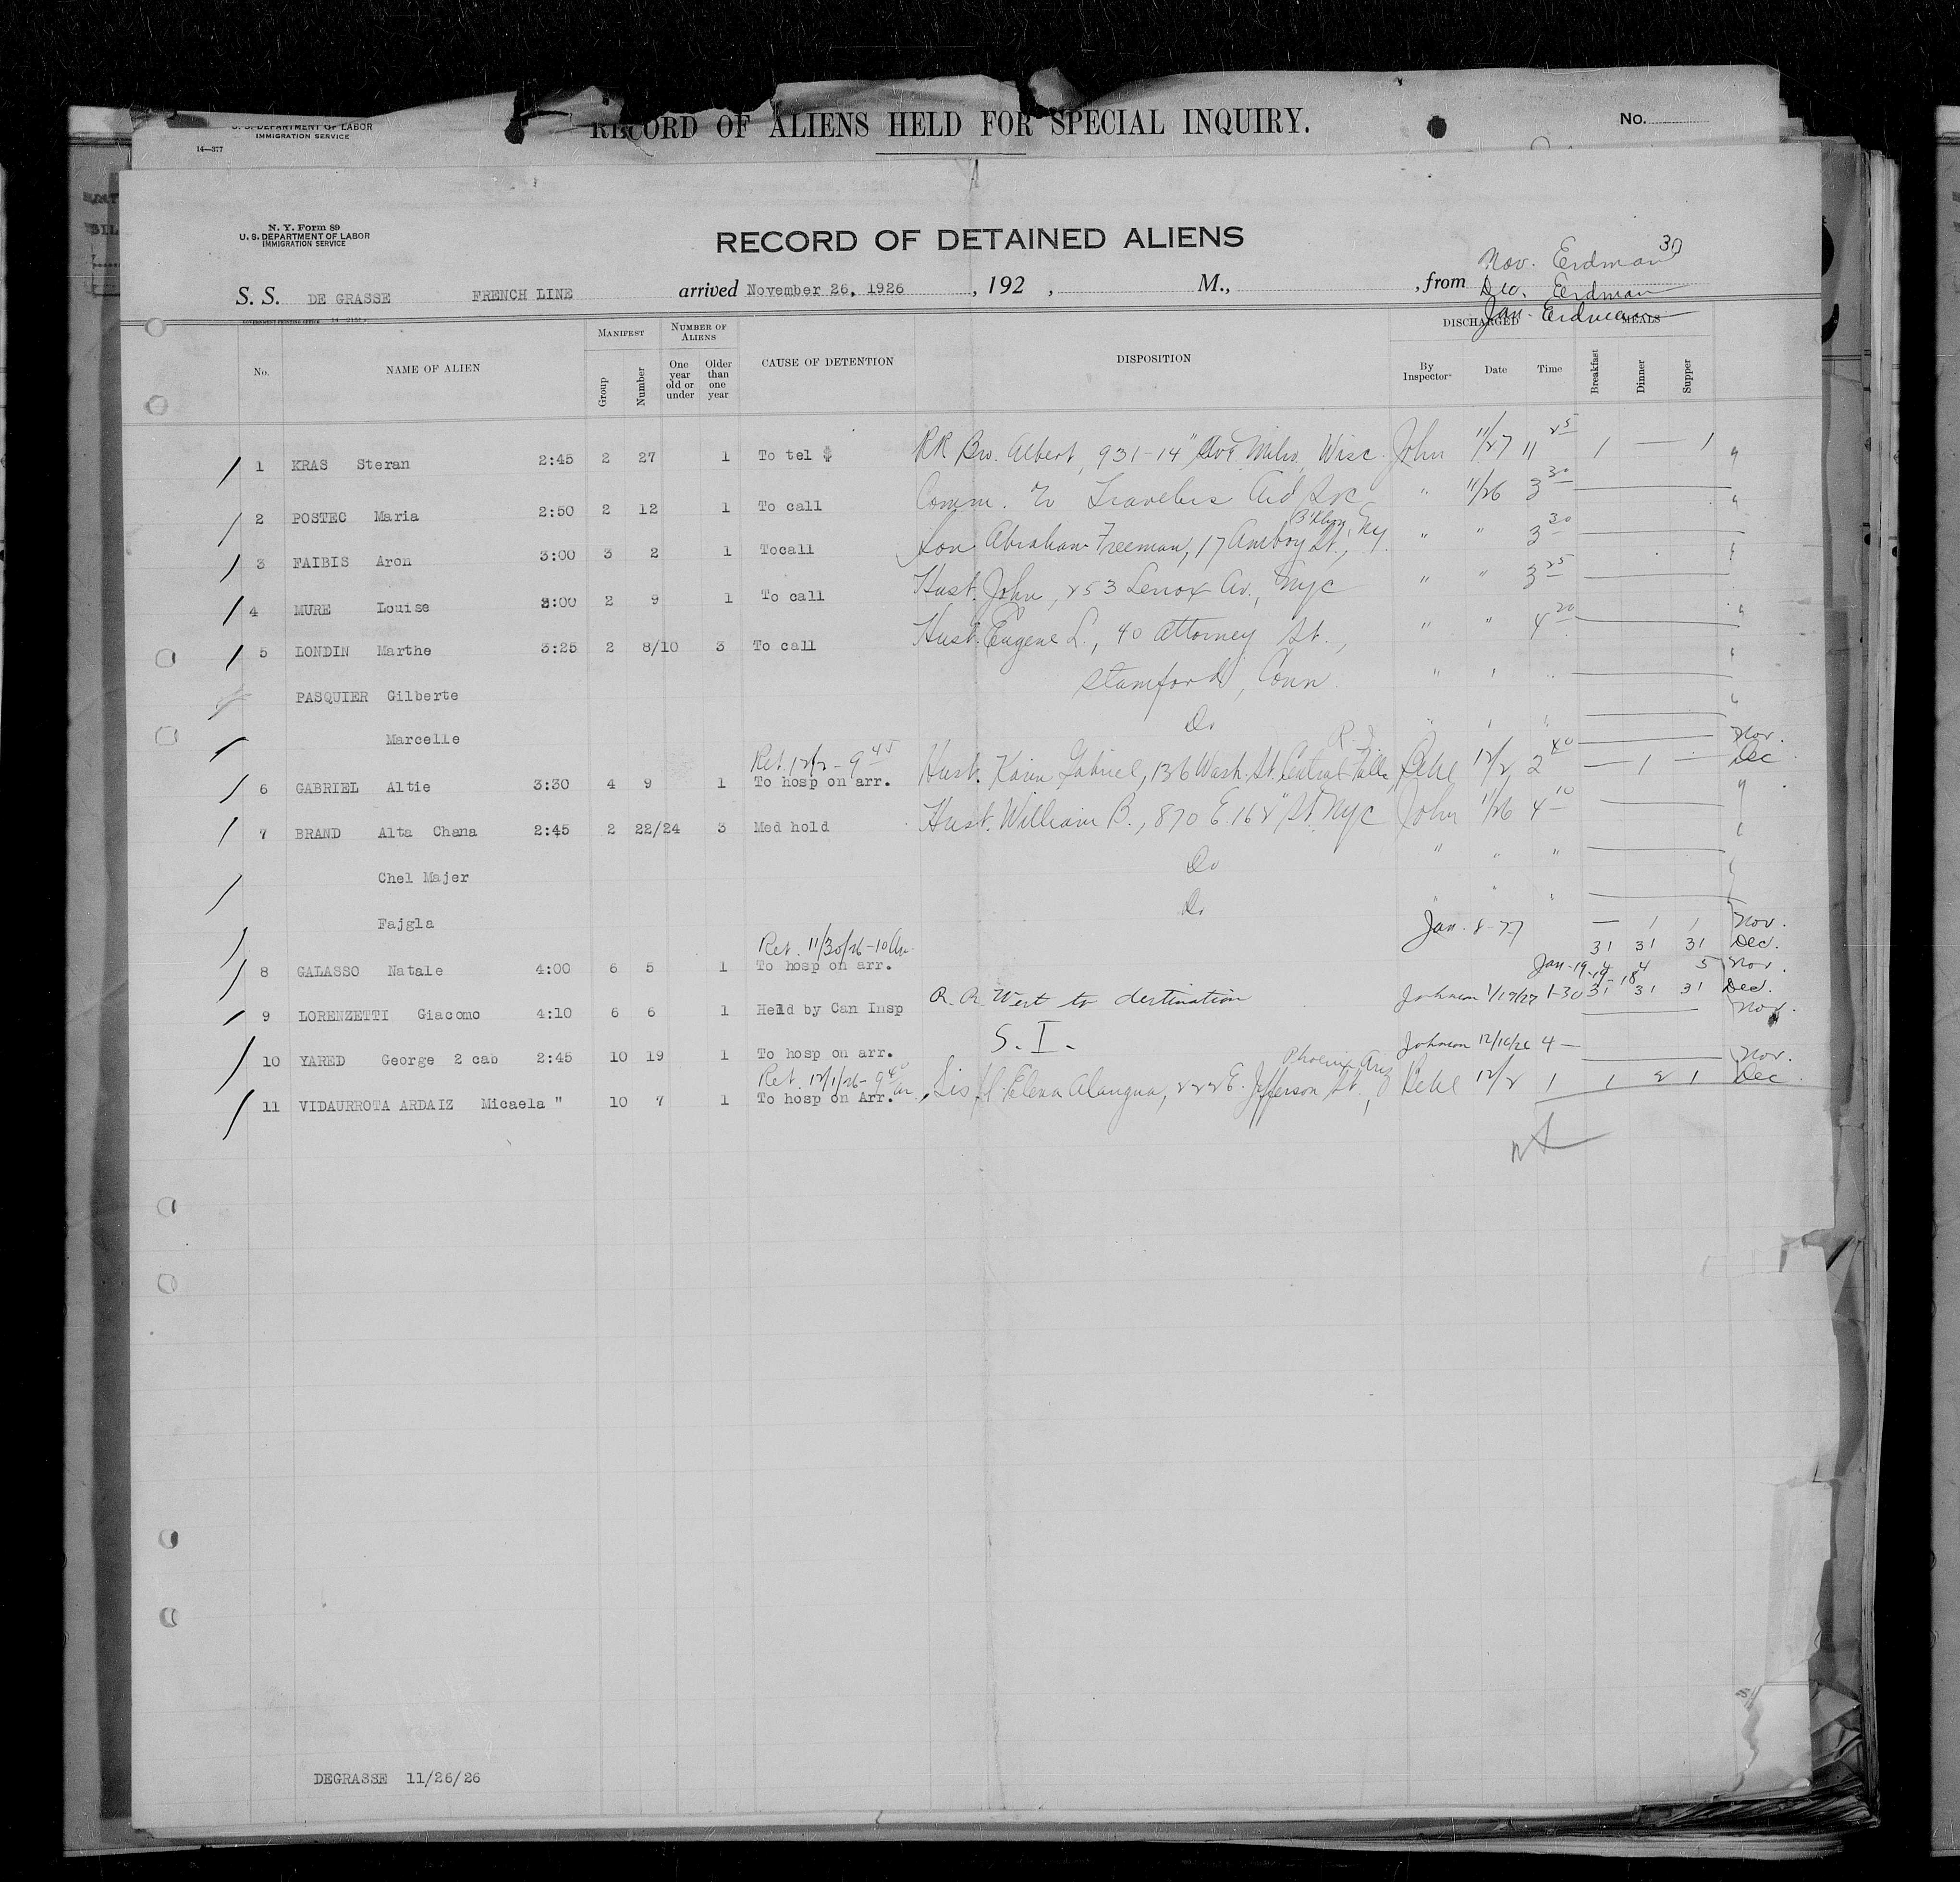 U. S. DEPARTMENT OF LABOR
IMMIGRATION SERVICE
14—377
RECORD OF ALIENS HELD FOR SPECIAL INQUIRY.
No.
N. Y. Form 89
U. S. DEPARTMENT OF LABOR
IMMIGRATION SERVICE
RECORD OF DETAINED ALIENS
30
Nov. Erdman
Dec. Erdman
Jan. Erdman
S. S. DE GRASSE FRENCH LINE arrived November 26, 1926, 192 , M., , from
No. NAME OF ALIEN MANIFEST Group Number NUMBER OF ALIENS One year old or under Older than one year CAUSE OF DETENTION DISPOSITION DISCHARGED By Inspector Date Time MEALS Breakfast Dinner Supper
1 KRAS Steran 2:45 2 27 1 To tel $ RR Bro. Albert, 931-14" Ave Milw. Wisc. John 11/27 11 25 1 — 1
2 POSTEC Maria 2:50 2 12 1 To call Comm. to Travelers Aid Soc " 11/26 3 30
3 FAIBIS Aron 3:00 3 2 1 Tocall Son Abraham Freeman, 17 Amboy St., Bklyn, Ny. " " 3 30
4 MURE Louise 3:00 2 9 1 To call Husb. John, 253 Lenox Av., Nyc " " 3 25
5 LONDIN Marthe 3:25 2 8/10 3 To call Husb. Eugene L., 40 Attorney St., " " 4 20
PASQUIER Gilberte Stamford, Conn. " "
Marcelle Do " " " Nov.
Ret. 12/2 - 9 45 R. I.
6 GABRIEL Altie 3:30 4 9 1 To hosp on arr. Husb. Karim Gabriel, 136 Wash. St. Central Falls 12/2 2 40 — 1 — Dec
7 BRAND Alta Chana 2:45 2 22/24 3 Med hold Husb. William B., 870 E. 162" St Nyc John 11/26 4 10
Chel Majer Do " " "
Fajgla Do " " "
Ret. 11/30/26 - 10 Am. Jan. 8-27 — 1 1 Nov.
31 31 31 Dec.
8 GALASSO Natale 4:00 6 5 1 To hosp on arr. Jan-19 4 4 5 Nov.
9 LORENZETTI Giacomo 4:10 6 6 1 Held by Can Insp R. R. West to destination Johnson 1/19/27 1-30 31 31 31 Dec.
Nov.
10 YARED George 2 cab 2:45 10 19 1 To hosp on arr. S. I. Johnson 12/16/26 4 — Nov.
Ret. 12/1/26 - 9 40 am. Phoenix Ariz
11 VIDAURROTA ARDAIZ Micaela " 10 7 1 To hosp on Arr. Sis. Elena Alangua, 222 E. Jefferson St., 12/2 1 1 2 1 Dec
DEGRASSE 11/26/26